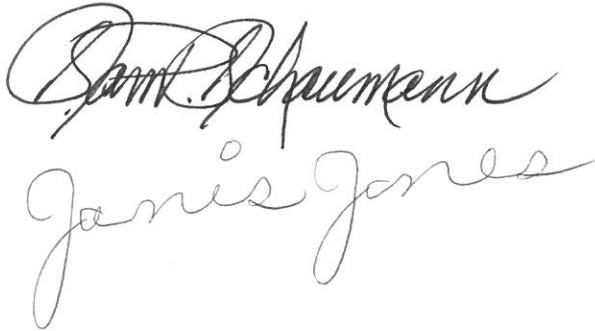 Sam R. Schaumann
Janis Jones